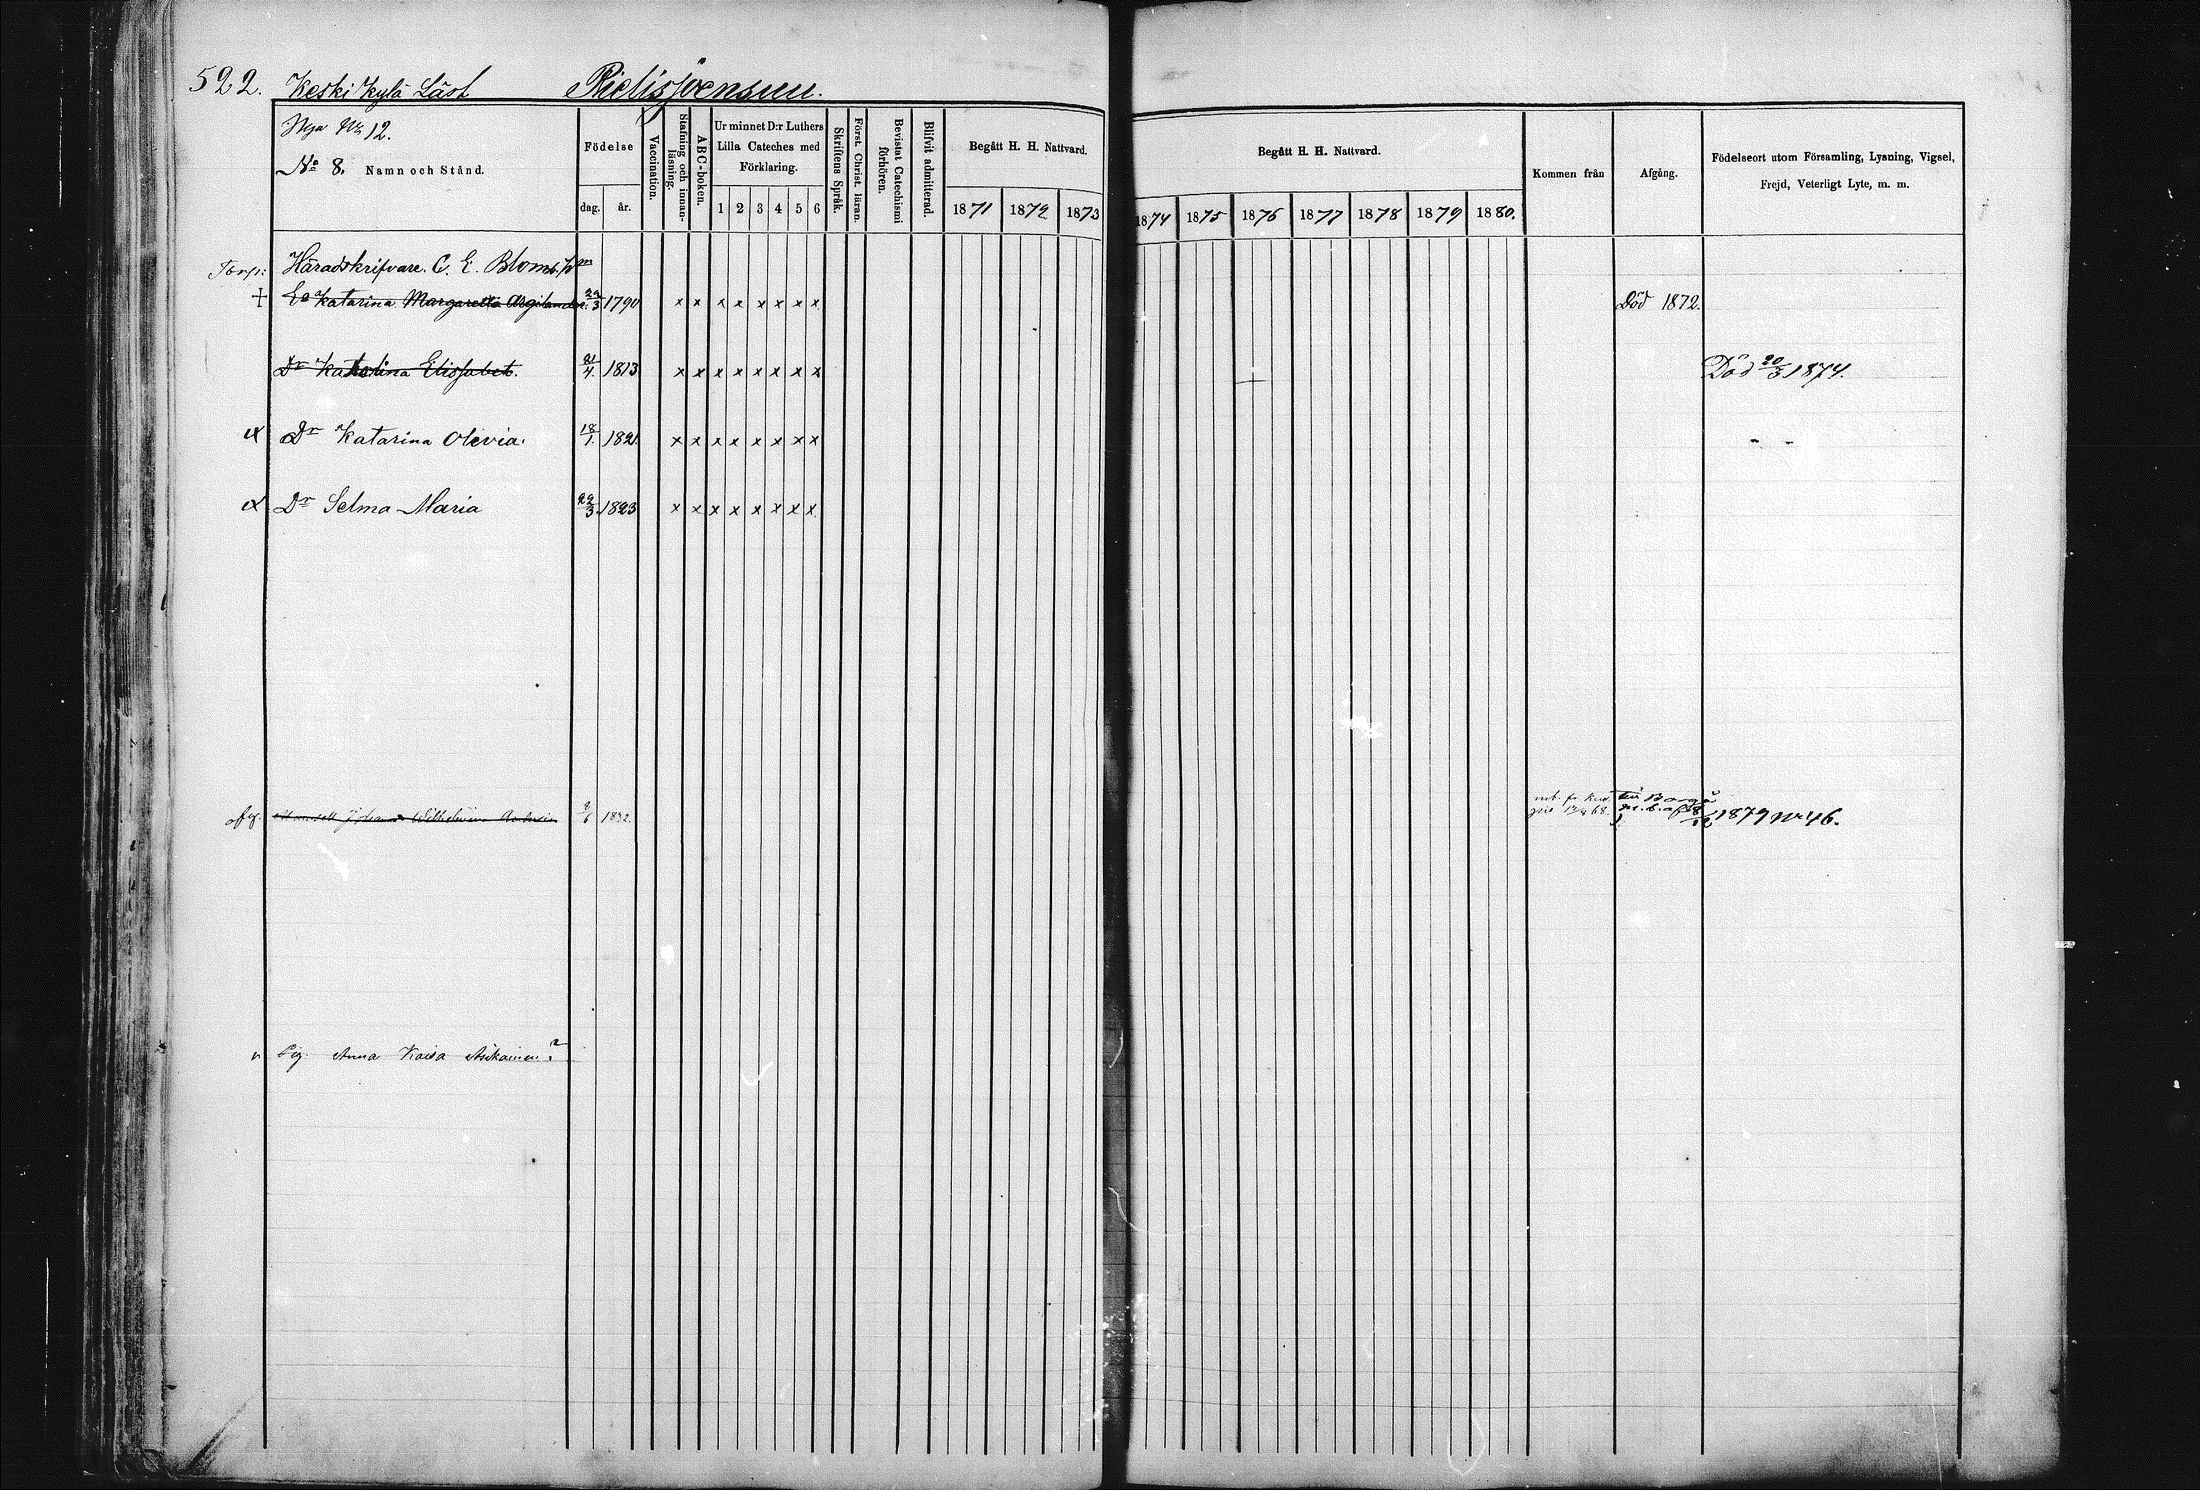 522. Keski Kylä Läst Pielisjoensuu.
Nya No 12.
No 8. Namn och Stånd.
Födelse
dag. år.
Vaccination.
Stafning och innanläsning.
ABC-boken.
Ur minnet D:r Luthers
Lilla Cateches med
Förklaring.
1 2 3 4 5 6
Skriftens Språk.
Först. Christ. läran.
Bevistat Catechismi förhören.
Blifvit admitterad.
Begått H. H. Nattvard.
1871 1872 1873
Begått H. H. Nattvard.
1874 1875 1876 1877 1878 1879 1880.
Kommen från
Afgång.
Födelseort utom Församling, Lysning, Vigsel,
Frejd, Veterligt Lyte, m. m.
Häradskrifvare. C. E. Bloms
+ Katarina Margaretta 1790 x x x x x x x x Död 1872.
Dr Elissabet. 21/4. 1813 x x x x x x x x Död 20/3 1874.
Dr Katarina Olivia. 18/1. 1821. x x x x x x x x
Dr Selma Maria 1823 x x x x x x x x
afg. Wilhelmina 1832. Till Borgå
1879 No 46.
Pig. Anna Kaisa Asikainen ?